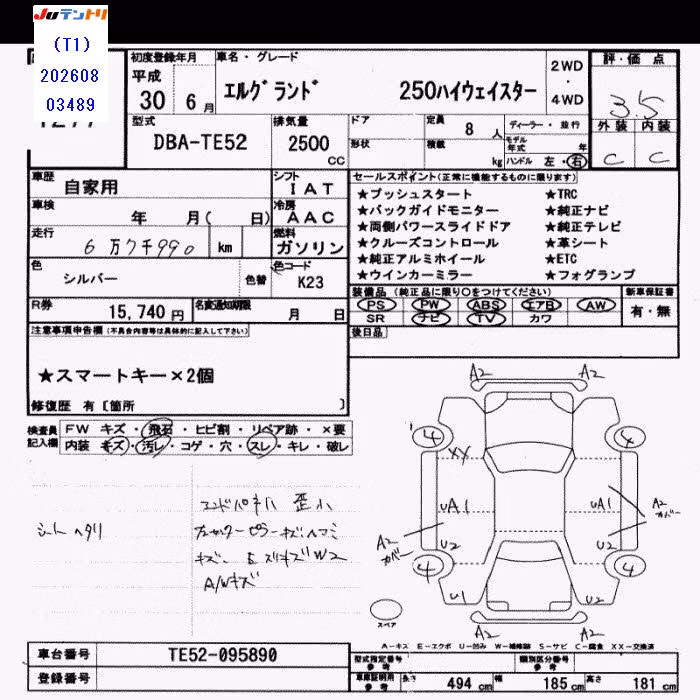 Juテントリ
(T1)
202608
03489
初度登録年月
平成
30 6月
車名・グレード
エルグランド 250ハイウェイスター
2WD
・
4WD
評・価 点
3.5
外装 内装
C C
型式
DBA-TE52
排気量
2500 CC
ドア
形状
定員
8 人
積載 kg
ディーラー・並行
モデル年式 年
ハンドル 左・右
車歴
自家用
シフト
IAT
車検
年 月( 日)
冷房
AAC
走行
6万7千990 km
燃料
ガソリン
色
シルバー
色替
色コード
K23
R券
15,740 円
名変通知期限
月 日
セールスポイント(正常に機能するものに限ります)
★プッシュスタート ★TRC
★バックガイドモニター ★純正ナビ
★両側パワースライドドア ★純正テレビ
★クルーズコントロール ★革シート
★純正アルミホイール ★ETC
★ウインカーミラー ★フォグランプ
装備品 (純正品に限り○をつけてください)
PS PW ABS エアB AW
SR ナビ TV カワ
新車保証書
有・無
後日品
注意事項申告欄(不具合内容等は具体的に記入して下さい)
★スマートキー×2個
修復歴 有〔箇所 〕
検査員記入欄
FW キズ・飛石・ヒビ割・リペア跡・×要
内装 キズ・汚レ・コゲ・穴・スレ・キレ・破レ
シートヘタリ
エンドパネル 歪小
キズ
A/Wキズ
A2 A2
4 4
XX
UA1 UA1
A2 カバー
A2 カバー
U2 U2
4 4
U1 U2
A2 A2
スペア
A-キズ E-エクボ U-凹み W-補修跡 S-サビ C-腐食 XX-交換済
車台番号
TE52-095890
登録番号
型式指定番号 参考
類別区分番号 参考
車庫証明用 参考
長さ 494 cm 幅 185 cm 高さ 181 cm